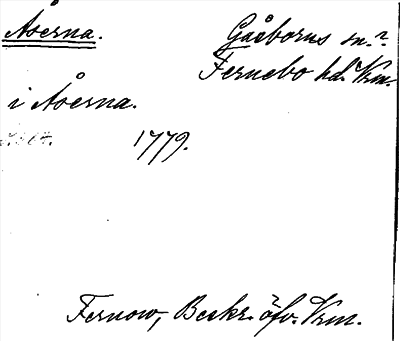 Åserna. Gåsborns sn.?
Fernebo hd. Vrm.
i Åserna.
1779.
Fernow, Beskr. öfv. Vrm.